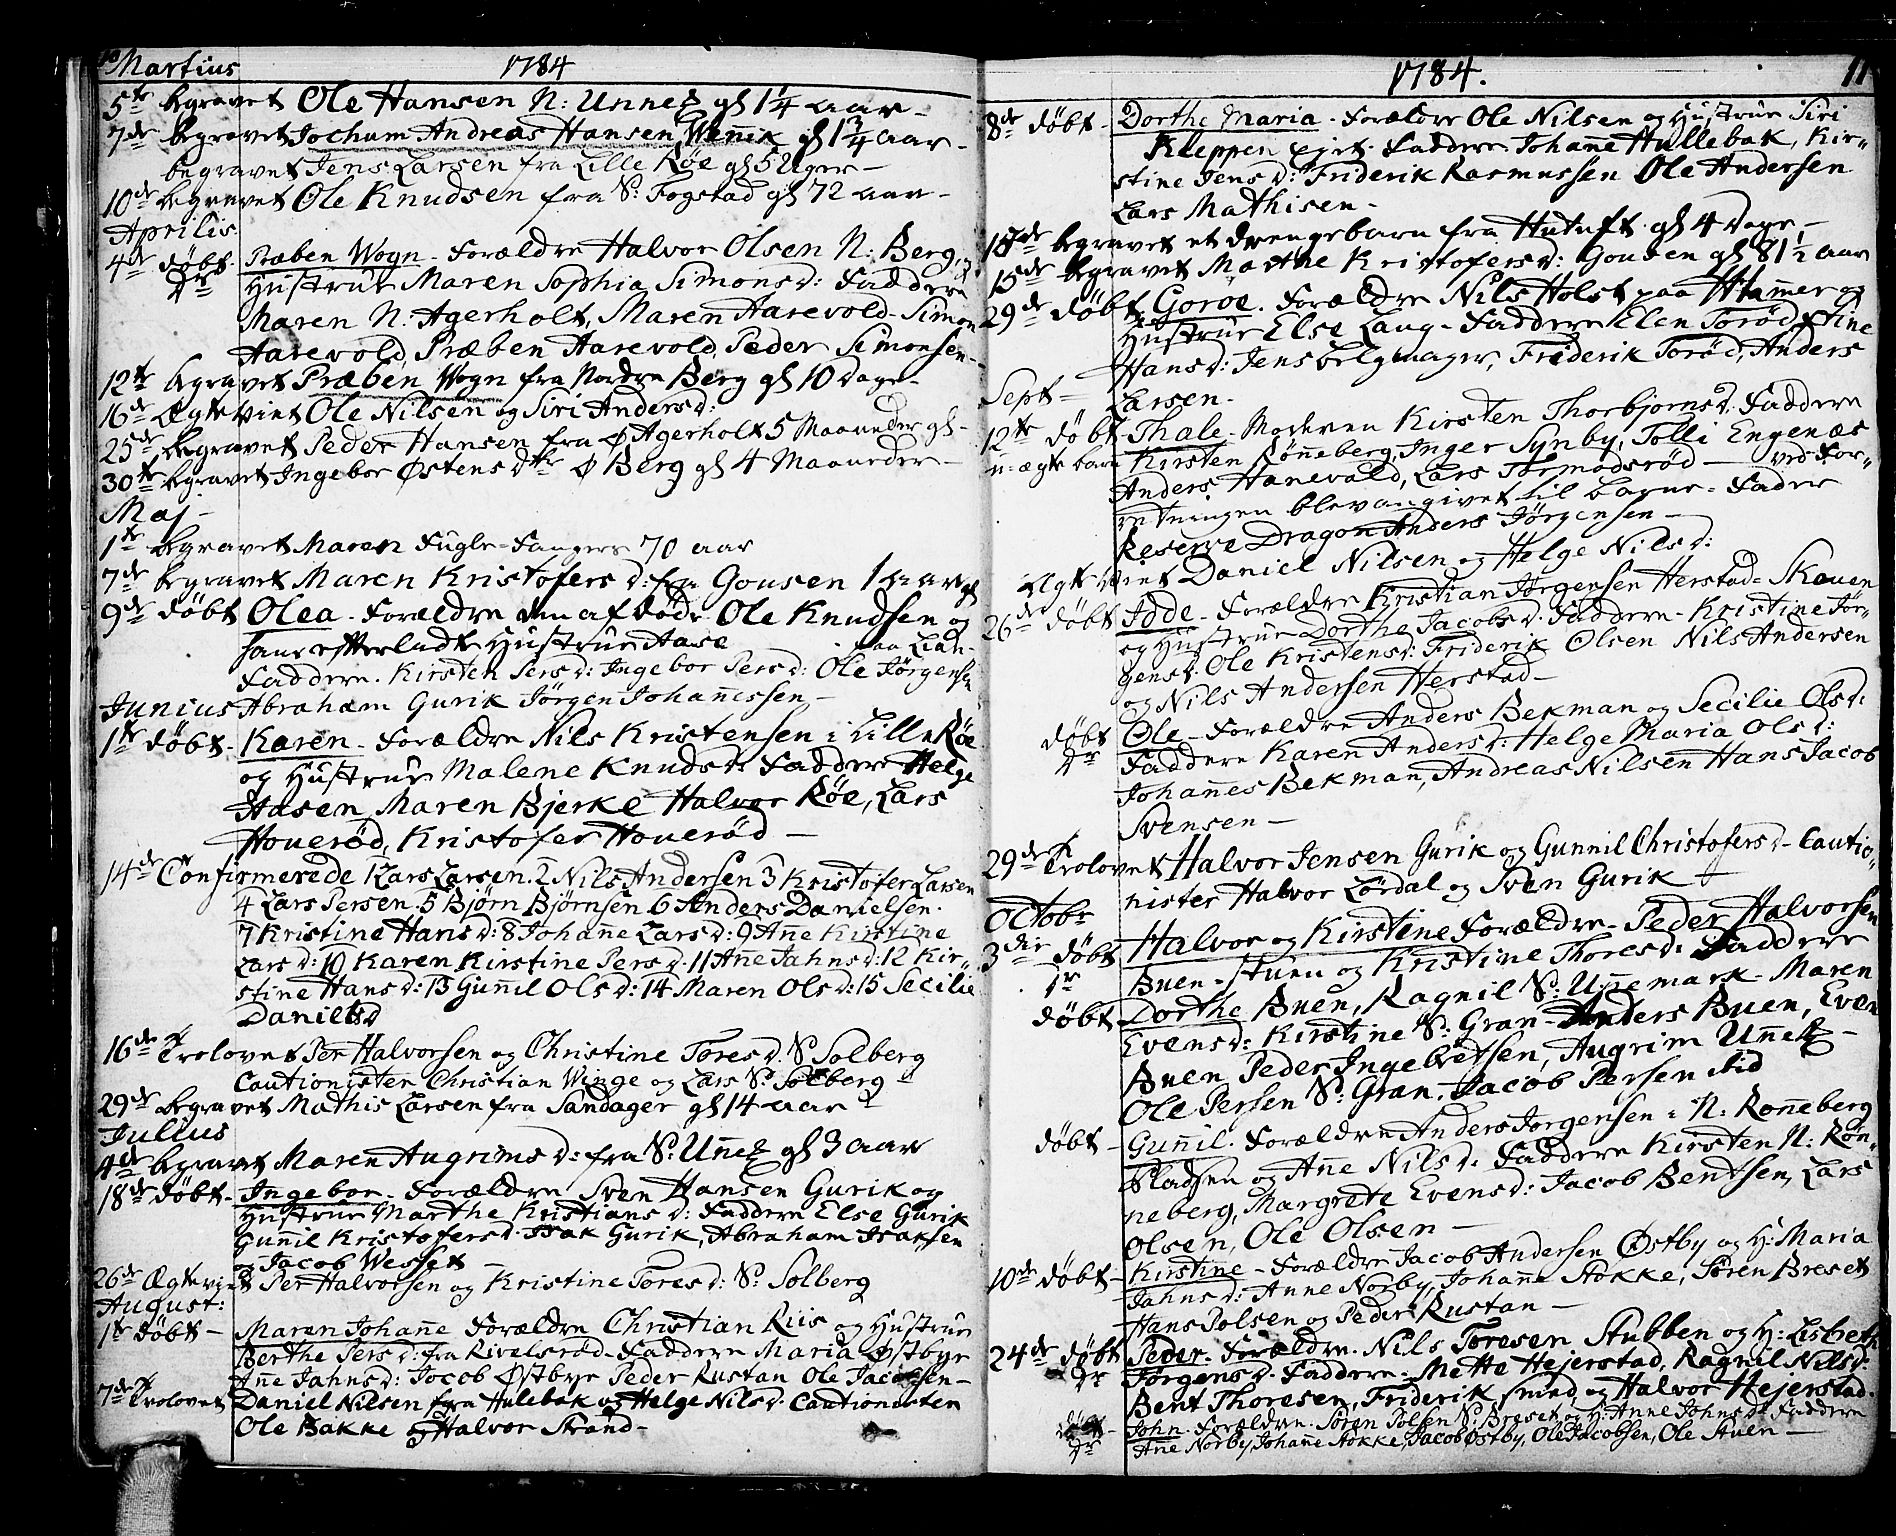 10
Martius 1784
5te begravet Ole Hansen N: Unneb: gl 1 1/4 aar-
7de begravet Jochum Andreas Hansen Wennik gl 1 3/4 aar-
begravet Jens Larsen fra Lille Røe gl 5 Uger-
10de begravet Ole Knudsen fra S: Fogstad gl 72 aar-
Aprilis
4de døbt Præben Wogn- Forældre Halvor Olsen N: Berg, og
Hustrue Maren Sophia Simonsd: Faddere
Maren N. Agerholt, Maren Aarevold- Simon
Aarevold, Præben Aarevold, Peder Simonsen-
12te begravet Præben Wogn fra Nordre Berg gl 10 Dage-
16de Ægteviet Ole Nilsen og Siri Andersd:
25de begravet Peder Hansen fra Ø Agerholt 5 Maaneder gl-
30te begravet Ingebor Østens dtr Ø Berg gl 4 Maaneder-
Maj-
1te begravet Maren Fugle-Fangers 70 aar
7de begravet Maren Kristofersd: fra Gousen 1 aar gl
9de døbt Olea- Forældre den afdøde Ole Knudsen og
hans efterladte Hustrue Aase paa Lian-
Faddere. Kirsten Persd: Ingebor Persd: Ole Jørgensen
Junius Abraham Gurik Jørgen Johannessen-
1te døbt- Karen- Forældre Nils Kristensen i Lille Røe
og Hustrue Malene Knudsd: Faddere Helge
Aasen, Maren Bjerke Halvor Røe, Lars
Houerød, Kristofer Houerød-
14de Confirmerede 1 Lars Larsen. 2 Nils Andersen 3 Kristofer Larsen
4 Lars Persen. 5 Bjørn Bjørnsen 6 Anders Danielsen.
7 Kristine Hansd: 8 Johanne Larsd: 9 Anne Kirstine
Larsd: 10 Karen Kirstine Persd: 11 Ane Jahnsd: 12 Kir-
stine Hansd: 13 Gunnil Olsd: 14 Maren Olsd: 15 Secilie
Danielsd
16de Trolovet Per Halvorsen og Christine Toresd. S. Solberg
Cautionister Christian Winge og Lars S: Solberg
29de begravet Mathis Larsen fra Sandager gl 14 aar
Julius
4de begravet Maren Augrimsd: fra S: Unneb gl 3 aar
18de døbt- Ingebor- Forældre Sven Hansen Gurik og
Hustrue Marthe Kristiansd: Faddere Else Gurik
Gunnil Kristofersd. Isak Gurik, Abraham Isaksen
og Jacob Wesset
26de Ægteviet Per Halvorsen og Kristine Toresd: S: Solberg
August:
1te døbt- Maren Johanne Forældre Christian Riis og Hustrue
Berthe Persd: fra Rivelsrød- Faddere Maria Østbye
Ane Jahnsd: Jocob Østbye Peder Rustan Ole Jacobsen-
7de Trolovet Daniel Nilsen fra Hulebak og Helge Nilsd. Cautionisten
Ole Bakke og Halvor Strand-
1784. 11
8de døbt- Dorthe Maria- Forældre Ole Nilsen og Hustrue Siri
Kleppen ejet. Faddere Johanne Hullebak, Kir-
stine Jensd: Friderik Rasmussen Ole Andersen
Lars Mathisen-
begravet et drengebarn fra Hutuft gl 4 Dage,-
15de begravet Marthe Kristofersd: Gousen gl 81 1/2 aar
29de døbt, Goroe. Forældre Nils Holst paa Hammer og
Hustrue Else Laug- Faddere Elen Torød, Stine
Hansd: Jens belgmager, Friderik Torød, Anders
Sept- Larsen-
12te døbt Thale- Moderen Kirsten Thorbjørnsd. Faddere
u-ægte barn Kirsten Rønneberg, Inger Synby, Tolli Engenæs
Anders Hanevald, Lars Tormodsrød- ved For-
retningen blev angivet til barne-Fader
Reserve Dragon Anders Jørgensen-
Ægteviet Daniel Nilsen og Helge Nilsd:
26de døbt Jode- Forældre Kristian Jørgensen Herstad-Skauen
og Hustrue Dorthe Jacobsd. Faddere- Kristine Jør-
gensd. Ole Kristensd: Friderik Olsen Nils Andersen
og Nils Andersen Herstad-
døbt Ole- Forældre Anders Bekman og Secilie Olsd:
Faddere Karen Andersd: Helge Maria Olsd:
Johannes Bekman, Andreas Nilsen Hans Jacob
Svensen-
29de Trolovet Halvor Jensen Gurik og Gunnil Christofersd- Cautio-
nister Halvor Lördal og Sven Gurik-
Octobr
3die døbt Halvor og Kirstine Forældre- Peder Halvorsen
Buen-stuen og Kristine Thoresd: Faddere
døbt Dorthe Buen, Ragnil S: Unnemark- Maren
Evensd: Kirstine S: Gran- Anders Buen, Even
Buen Peder Ingebretsen, Augrim Unneb-
Ole Persen S: Gran. Jacob Persen ibid
døbt- Gunnil. Forældre Anders Jørgensen i N: Rønneberg
Pladsen og Ane Nilsd. Faddere Kirsten N: Røn-
neberg, Margrete Evensd: Jacob Bentsen, Lars
Olsen, Ole Olsen-
10de døbt- Kirstine- Forældre Jacob Andersen Østby og H: Maria
Jahnsd: Anne Norby, Johanne Stokke, Søren Breset
Hans Polsen og Peder Rustan-
24de døbt Peder- Forældre. Nils Toresen Stubben og H: Lisbeth
Jørgensd- Faddere- Mette Hejerstad, Ragnil Nilsd:
Bent Thoresen, Friderik smed, og Halvor Hejerstad.
døbt- John- Forældre. Søren Polsen S: Breset og H: Anne Johnsd: Faddere
Ane Norby, Johanne Stokke, Jacob Østby, Ole Jacobsen, Ole Stuen-